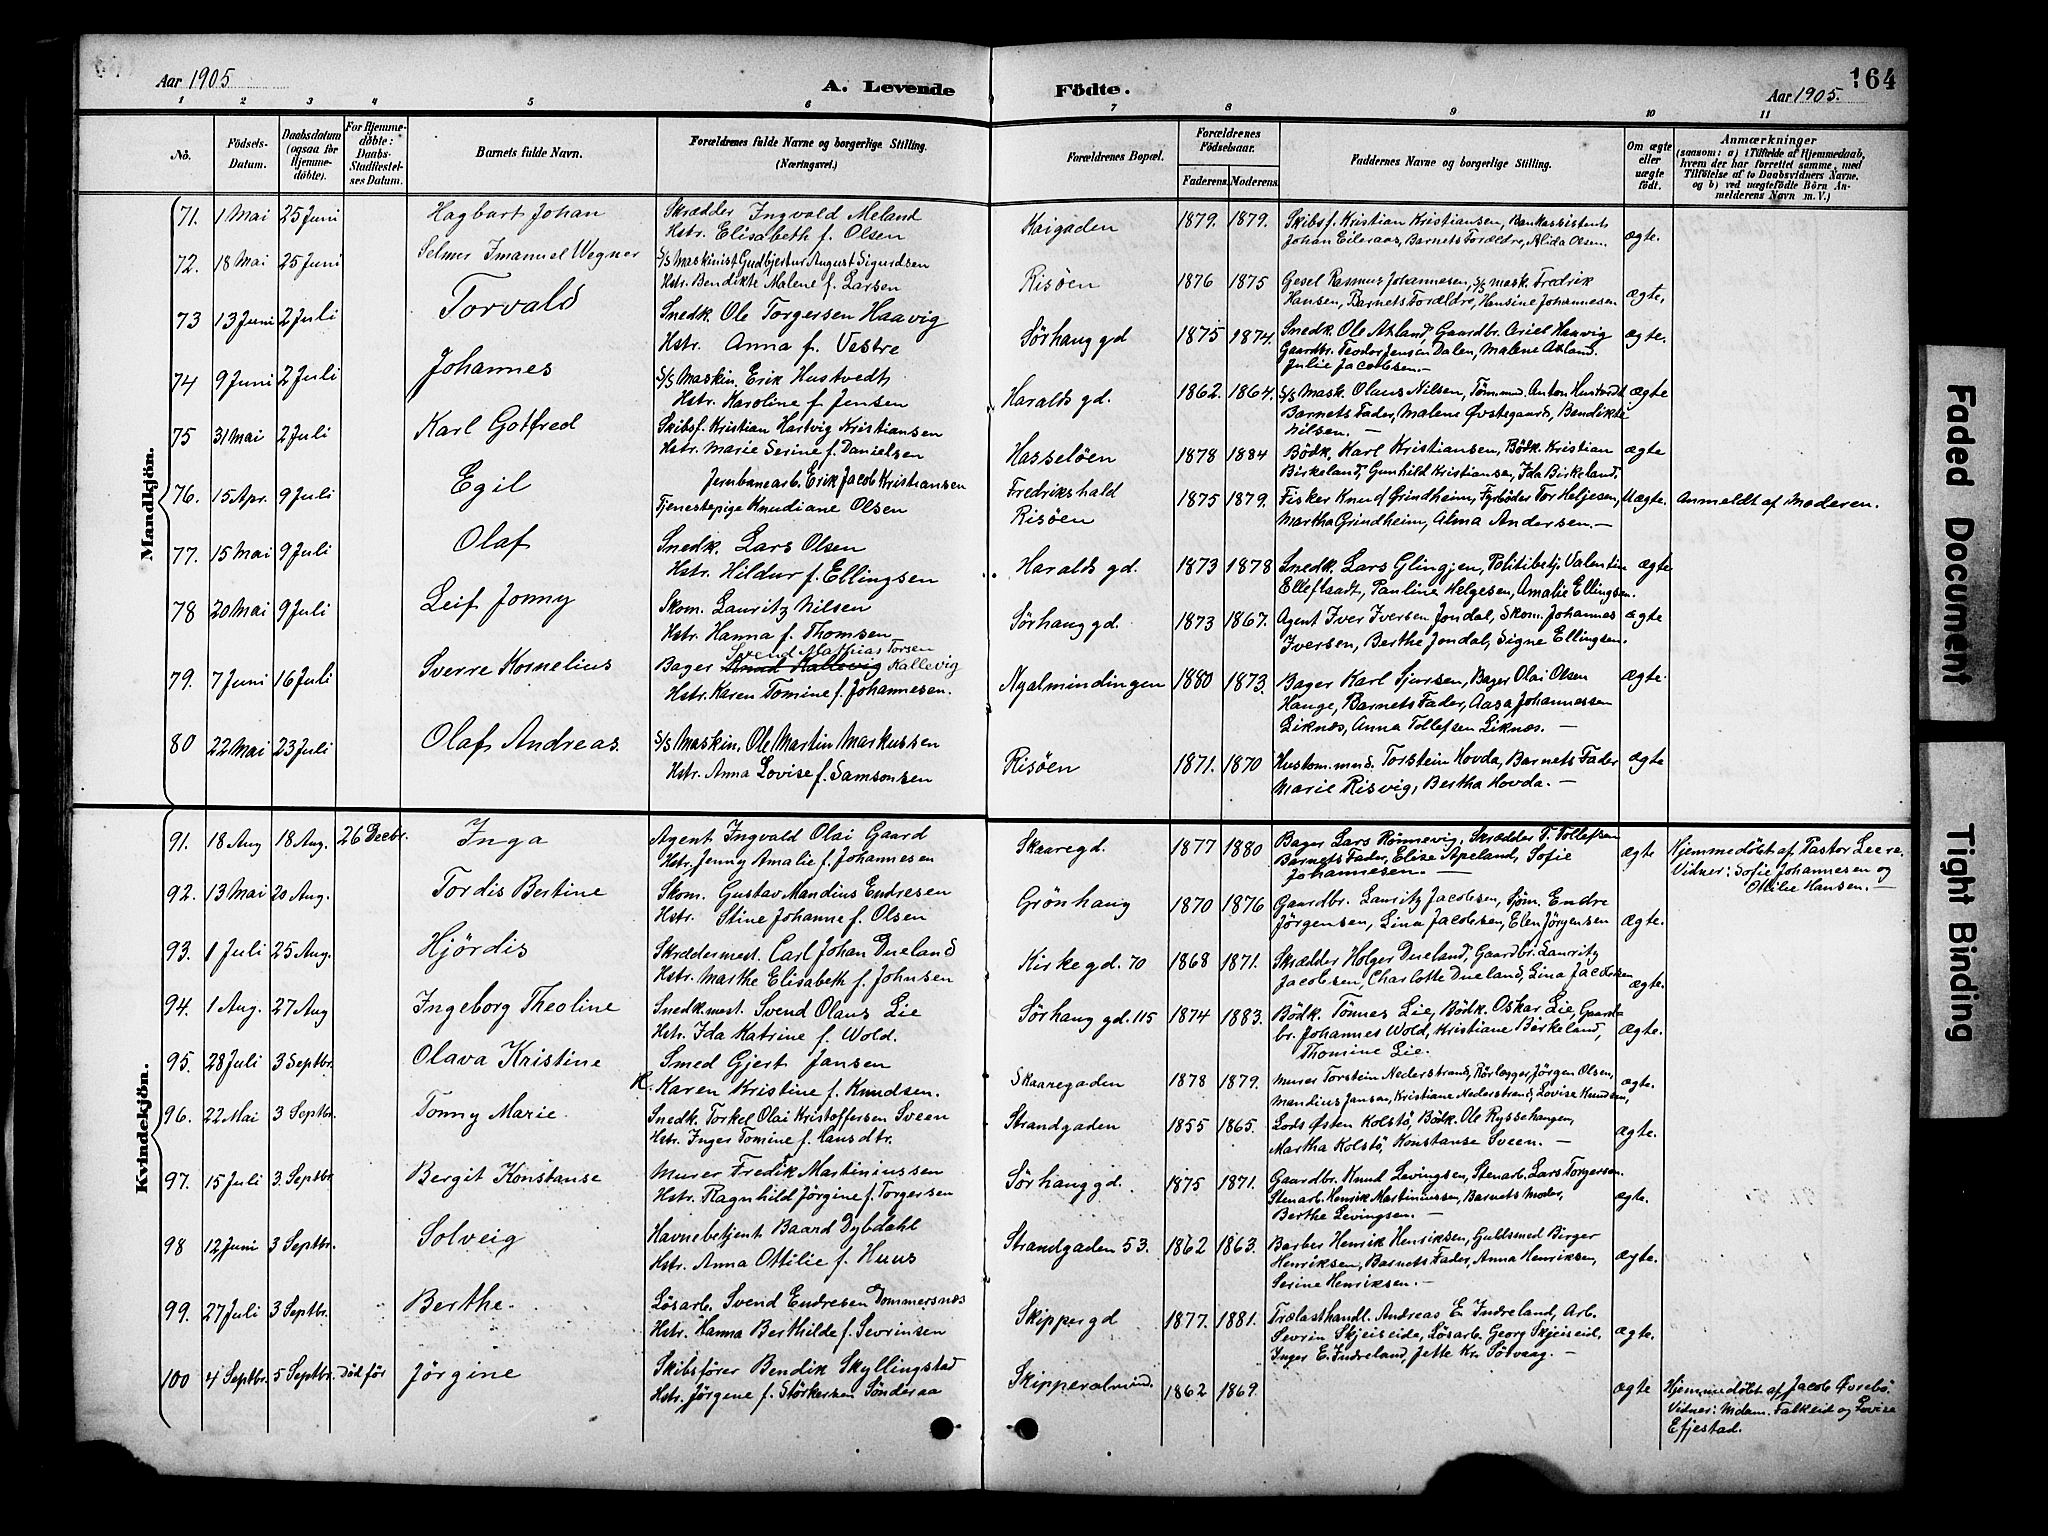 Aar 1905
A. Levende
Födte.
164
Aar 1905.
1 2 3 4 5 6 7 8 9 10 11
No.
Födsels-Datum.
Daabsdatum (ogsaa for Hjemme-döbte).
For Hjemme-döbte: Daabs-Stadfæstel-ses Datum.
Barnets fulde Navn.
Forældrenes fulde Navne og borgerlige Stilling. (Næringsvei.)
Forældrenes Bopæl.
Forældrenes Födselsaar.
Faderens. Moderens.
Faddernes Navne og borgerlige Stilling.
Om ægte eller uægte födt.
Anmærkninger
(saasom: a) i Tilfælde af Hjemmedaab, hvem der har forrettet samme, med Tilföielse af to Daabsvidners Navne, og b) ved uægtefödte Börn An-melderens Navn m. V.)
Mandkjön.
71. 1 Mai 25 Juni Hagbart Johan Skrædder Ingvald Meland
Hstr. Elisabeth f. Olsen Kaigaden 1879. 1879. Skibsf. Kristian Kristiansen, Bankassistent
Johan Eileraas, Barnets Forældre, Alida Olsen. ægte.
72. 18 Mai 25 Juni Selmer Imanuel Wegner S/S Maskinist Gudbjertur August Sigurdsen
Hstr. Bendikte Malene f. Larsen Risöen 1876 1875 Gesel Rasmus Johannesen, S/S mask. Fredrik
Hansen, Barnets Forældre, Hansine Johannesen ægte.
73 13 Juni 2 Juli Torvald Snedk. Ole Torgersen Haavig
Hstr. Anna f. Vestre Sörhaug gd 1875 1874. Snedk. Ole Axland, Gaardbr. Ariel Haavig
Gaardbr. Teodor Jensen Dalen, Malene Axland. ægte.
Julie Jacobsen.—
74 9 Juni 2 Juli Johannes S/S Maskin. Erik Hustvedt
Hstr. Karoline f. Jensen Haralds gd. 1862. 1864. S/S Mask. Olaus Nilsen, Tömmm. Anton Hustvedt ægte
Barnets Fader, Malene Øvstegaard, Bendikte
Nilsen. —
75 31 Mai 2 Juli Karl Gotfred Skibsf. Kristian Hartvig Kristiansen
Hstr. Marie Serine f. Danielsen Hasselöen 1878 1884 Bödk. Karl Kristiansen, Bödk. Kristian
Birkeland, Gunhild Kristiansen, Ida Birkeland. ægte
76. 15 Apr. 9 Juli Egil Jernbanearb. Erik Jacob Kristiansen
Tjenestepige Knudiane Olsen Fredrikshald
Risöen 1875 1879. Fisker Knud Grindheim, Fyrböder Tor Heljesen,
Martha Grindheim, Alma Andersen.— Uægte. Anmeldt af Moderen.
77. 15 Mai 9 Juli Olaf Snedk. Lars Olsen
Hstr. Hildur f. Ellingsen Haralds gd. 1873 1878 Snedk. Lars Glingjen, Politibetj. Valentin
Elleflaadt, Pauline Helgesen, Amalie Ellingsen. ægte
78 20 Mai 9 Juli Leif Jonny Skom. Lauritz Nilsen
Hstr. Hanna f. Thomsen Sörhaug gd. 1873 1867. Agent Iver Iversen Jondal, Skom. Johannes
Iversen, Berthe Jondal, Signe Ellingsen. ægte
79. 7 Juni 16 Juli Sverre Kornelius Svend Mathias Torsen
Bager Kallevig
Hstr. Karen Tomine f. Johannesen. Nyalmindingen 1880 1873. Bager Karl Sjursen, Bager Olai Olsen
Hauge, Barnets Fader, Aasa Johannessen
Liknæs, Anna Tollefsen Liknæs. — ægte.
80 22 Mai 23 Juli Olaf Andreas S/S Maskin. Ole Martin Markussen
Hstr. Anna Lovise f. Samsonsen Risöen 1871. 1870 Hustom.mand. Torstein Hovda, Barnets Fader
Marie Risvig, Bertha Hovda. — ægte
Kvindekjön.
91. 18 Aug 18 Aug. 26 Decbr. Inga Agent Ingvald Olai Gaard
Hstr. Jenny Amalie f. Johannesen Skaaregd. 1877 1880 Bager Lars Rönnevig, Skrædder T. Tollefsen
Barnets Fader, Elise Apeland, Sofie
Johannesen. — ægte Hjemmedöbt af Pastor Leere.
Vidner: Sofie Johannesen og
Ottilie Hansen. —
92. 13 Mai 20 Aug. Tordis Bertine Skom. Gustav Mandius Endresen
Hstr. Stine Johanne f. Olsen Grönhaug 1870 1876 Gaardbr. Lauritz Jacobsen, Sjöm. Endre
Jörgensen, Lina Jacobsen, Elen Jörgensen ægte.
93. 1 Juli 25 Aug. Hjördis Skræddermest. Carl Johan Dueland
Hstr. Marthe Elisabeth f. Johnsen Kirkegd. 70 1868 1871. Skrædder Holger Dueland, Gaardbr. Lauritz
Jacobsen, Charlotte Dueland, Lina Jacobsen ægte.
94. 1 Aug. 27 Aug Ingeborg Theoline Snedk.mest. Svend Olaus Lie
Hstr. Ida Katrine f. Wold. Sörhaug gd. 115 1874 1883. Bödk. Tönnes Lie, Bödk. Oskar Lie, Gaard-
br. Johannes Wold, Kristiane Birkeland,
Thomine Lie. ægte.
95. 28 Juli 3 Septbr. Olava Kristine Smed Gjert Jansen
H. Karen Kristine f. Knudsen. Skaaregaden 1878 1879. Murer Torstein Nederstrand, Rörlegger Jörgen Olsen,
Mandius Jansen, Kristiane Nederstrand, Lovise Knudsen, ægte.
96. 22 Mai 3 Septbr. Tonny Marie. Snedk. Torkel Olai Kristoffersen Sveen
Hstr. Inger Tomine f. Hansdtr. Strandgaden 1855 1865. Lods Østen Kolstö, Bödk. Ole Ryssehaugen,
Martha Kolstö, Konstanse Sveen. — ægte.
97. 15 Juli 3. Septbr. Bergit Konstanse Murer Fredik Martiniussen
Hstr. Ragnhild Jörgine f. Torgersen Sörhaug gd. 1875 1871. Gaardbr. Knud Levingsen, Stenarb. Lars Torgersen.
Stenarb. Henrik Martiniussen, Barnets Moder,
Berthe Levingsen. — ægte.
98 12 Juni 3 Septbr. Solveig Havnebetjent Baard Dybdahl
Hstr. Anna Ottilie f. Huus Strandgaden 53. 1862 1863. Barber Henrik Henriksen, Guldsmed Birger
Henriksen, Barnets Fader, Anna Henriksen,
Serine Henriksen. — ægte.
99. 27 Juli 3 Septbr. Berthe. Lösarb. Svend Endresen Dommersnæs
Hstr. Hanna Berthilde f. Sevrinsen Skippergd 1877. 1881. Trælasthandl. Andreas E. Indreland, Arb.
Sevrin Skjeiseide, Lösarb. Georg Skjeiseid,
Inger E. Indreland, Jette Kr. Sötvaag. — ægte.
100 4 Septbr. 5 Septbr. Död för Jörgine Skibsförer Bendik Skyllingstad
Hstr. Jörgene f. Störkersen Sönderaa Skipperalmind. 1862 1869. ægte Hjemmedöbt af Jacob Övrebö.
Vidner: Mdam. Falkeid og Lovise
Efjestad.
Faded Document
Tight Binding